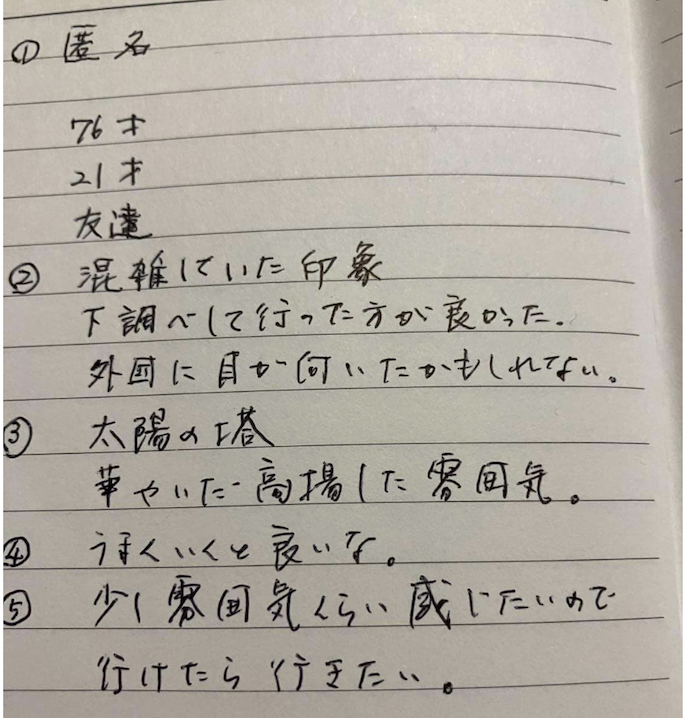 ① 匿名
76才
21才
友達
② 混雑していた印象
下調べして行った方が良かった。
外国に目が向いたかもしれない。
③ 太陽の塔
華やいだ高揚した雰囲気。
④ うまくいくと良いな。
⑤ 少し雰囲気くらい感じたいので
行けたら行きたい。